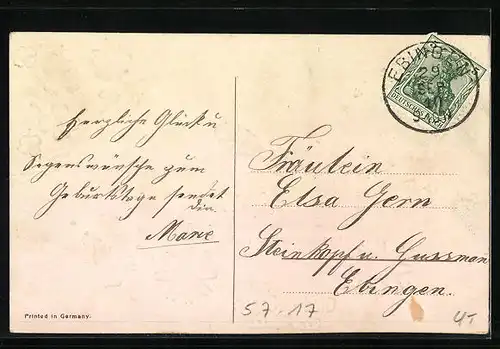 Herzliche Glück u
Segenswünsche zum
Geburtstage sendet
dir
Marie
EBINGEN
29
SEP
DEUTSCHES REICH
Fräulein
Elsa Gern
Steinkopf u. Gussman
Ebingen.
57.17
Printed in Germany.